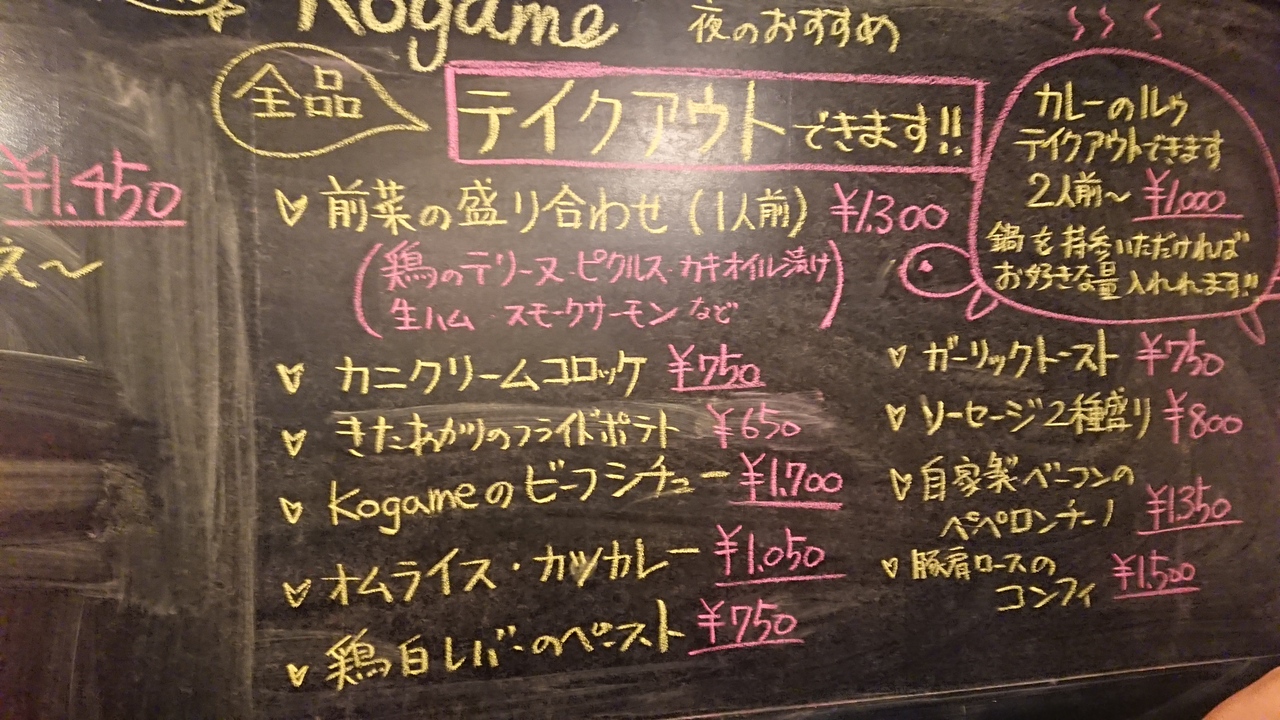 Kogame
夜のおすすめ
全品
テイクアウトできます!!
カレーのルゥ
テイクアウトできます
2人前〜 ¥1,000
鍋を持参いただければ
お好きな量入れれます!!
¥1.450
え〜
前菜の盛り合わせ(1人前) ¥1.300
(鶏のテリーヌ・ピクルス・カキオイル漬け
生ハム・スモークサーモンなど)
カニクリームコロッケ ¥750
きたあかりのフライドポテト ¥650
Kogameのビーフシチュー ¥1.700
オムライス・カツカレー ¥1.050
鶏白レバーのペースト ¥750
ガーリックトースト ¥750
ソーセージ2種盛り ¥800
自家製ベーコンの
ペペロンチーノ ¥1.350
豚肩ロースの
コンフィ ¥1,500